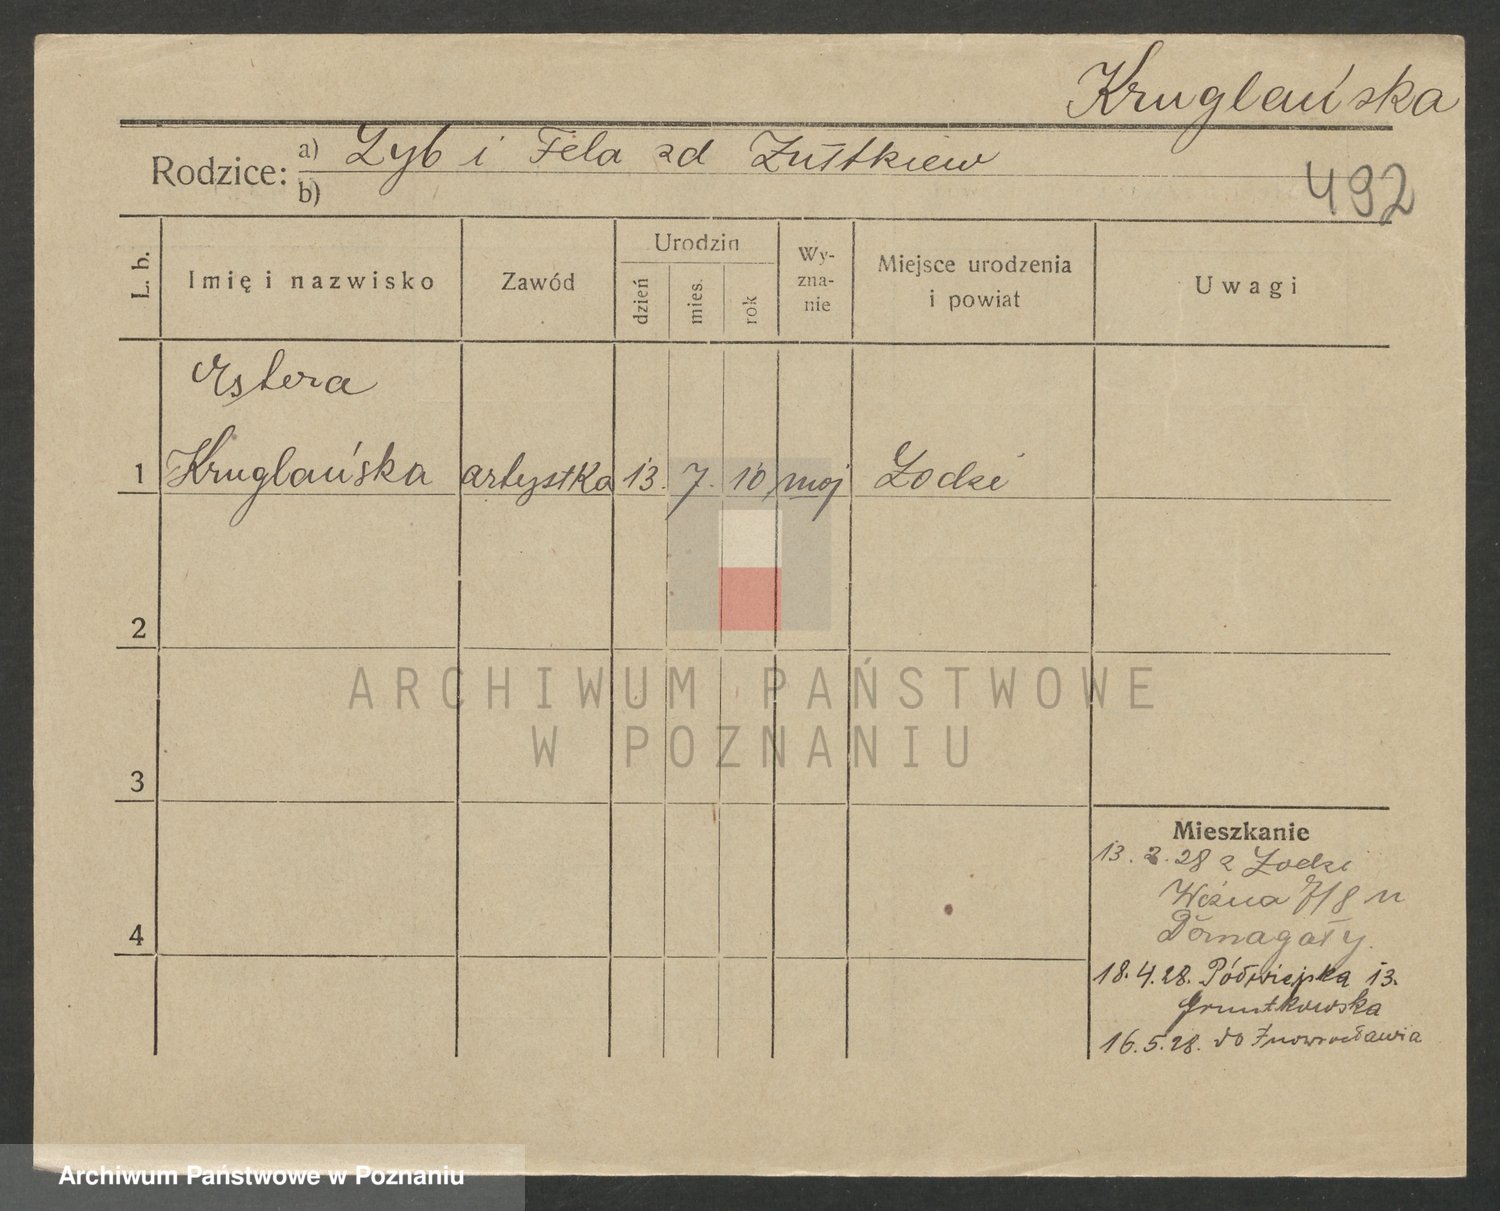 Kruglańska
Rodzice: a) Lyb i Fela zd
b)
492
L. b.
Imię i nazwisko
Zawód
Urodzin
dzień
mies.
rok
Wy-
zna-
nie
Miejsce urodzenia
i powiat
Uwagi
Estera
1 Kruglańska artystka 13. 7. 10 moj Łodzi
2
3
4
Mieszkanie
13. 2. 28 z Łodzi
Woźna 7/8 u
Domagały.
18.4.28. Półwiejska 13.
Gruntkowska
16.5.28. do Inowrocławia
ARCHIWUM PAŃSTWOWE
W POZNANIU
Archiwum Państwowe w Poznaniu